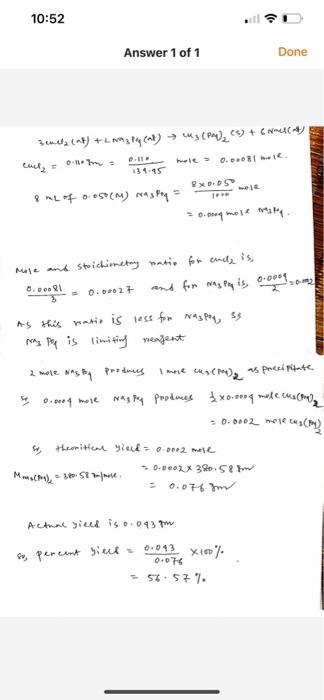 10:52
Answer 1 of 1
Done
3 CuCl2 (aq) + 2 Na3PO4 (aq) → Cu3(PO4)2 (s) + 6 NaCl (aq)
CuCl2 = 0.110 gm = 0.110 / 134.45 mole = 0.00081 mole.
8 mL of 0.050 (M) Na3PO4 = 8 x 0.050 / 1000 mole
= 0.0004 mole Na3PO4.
Mole and stoichiometry ratio for CuCl2 is,
0.00081 / 3 = 0.00027 and for Na3PO4 is, 0.0004 / 2 = 0.0002
As this ratio is less for Na3PO4, so
Na3PO4 is limiting reagent
2 mole Na3PO4 produces 1 mole Cu3(PO4)2 as precipitate
So, 0.0004 mole Na3PO4 produces 1/2 x 0.0004 mole Cu3(PO4)2
= 0.0002 mole Cu3(PO4)2
So, theoritical yield = 0.0002 mole
= 0.0002 x 380.58 gm
= 0.076 gm
= 380.58 gm/mole.
Actual yield is 0.043 gm
So, percent yield = 0.043 / 0.076 x 100%.
= 56.57%.